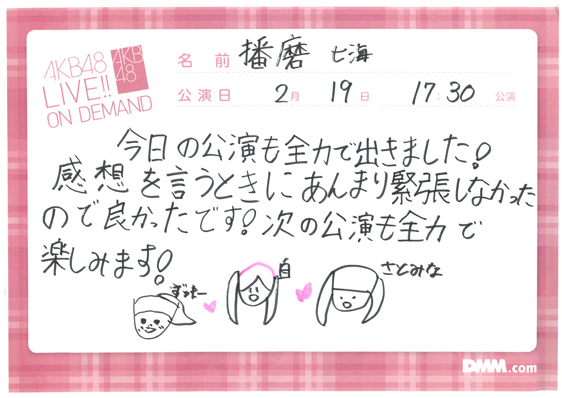 AKB48
LIVE!!
ON DEMAND
AKB
48
名前 播磨 七海
公演日 2月 19日 17:30 公演
今日の公演も全力で出きました!
感想を言うときにあんまり緊張しなかった
ので良かったです!次の公演も全力で
楽しみます!
ずっきー
自
さとみな
DMM.com